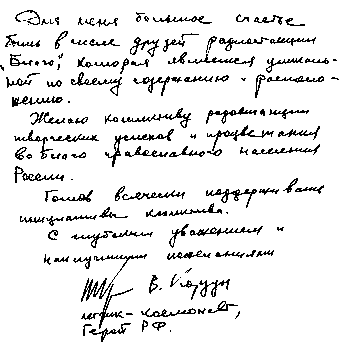 Для меня большое счастье
быть в числе друзей радиостанции
"Благо", которая является уникаль-
ной по своему содержанию и располо-
жению.
Желаю коллективу радиостанции
творческих успехов и процветания
во благо православного населения
России.
Готов всячески поддерживать
инициативы коллектива.
С глубоким уважением и
наилучшими пожеланиями
В.
летчик-космонавт,
Герой РФ.